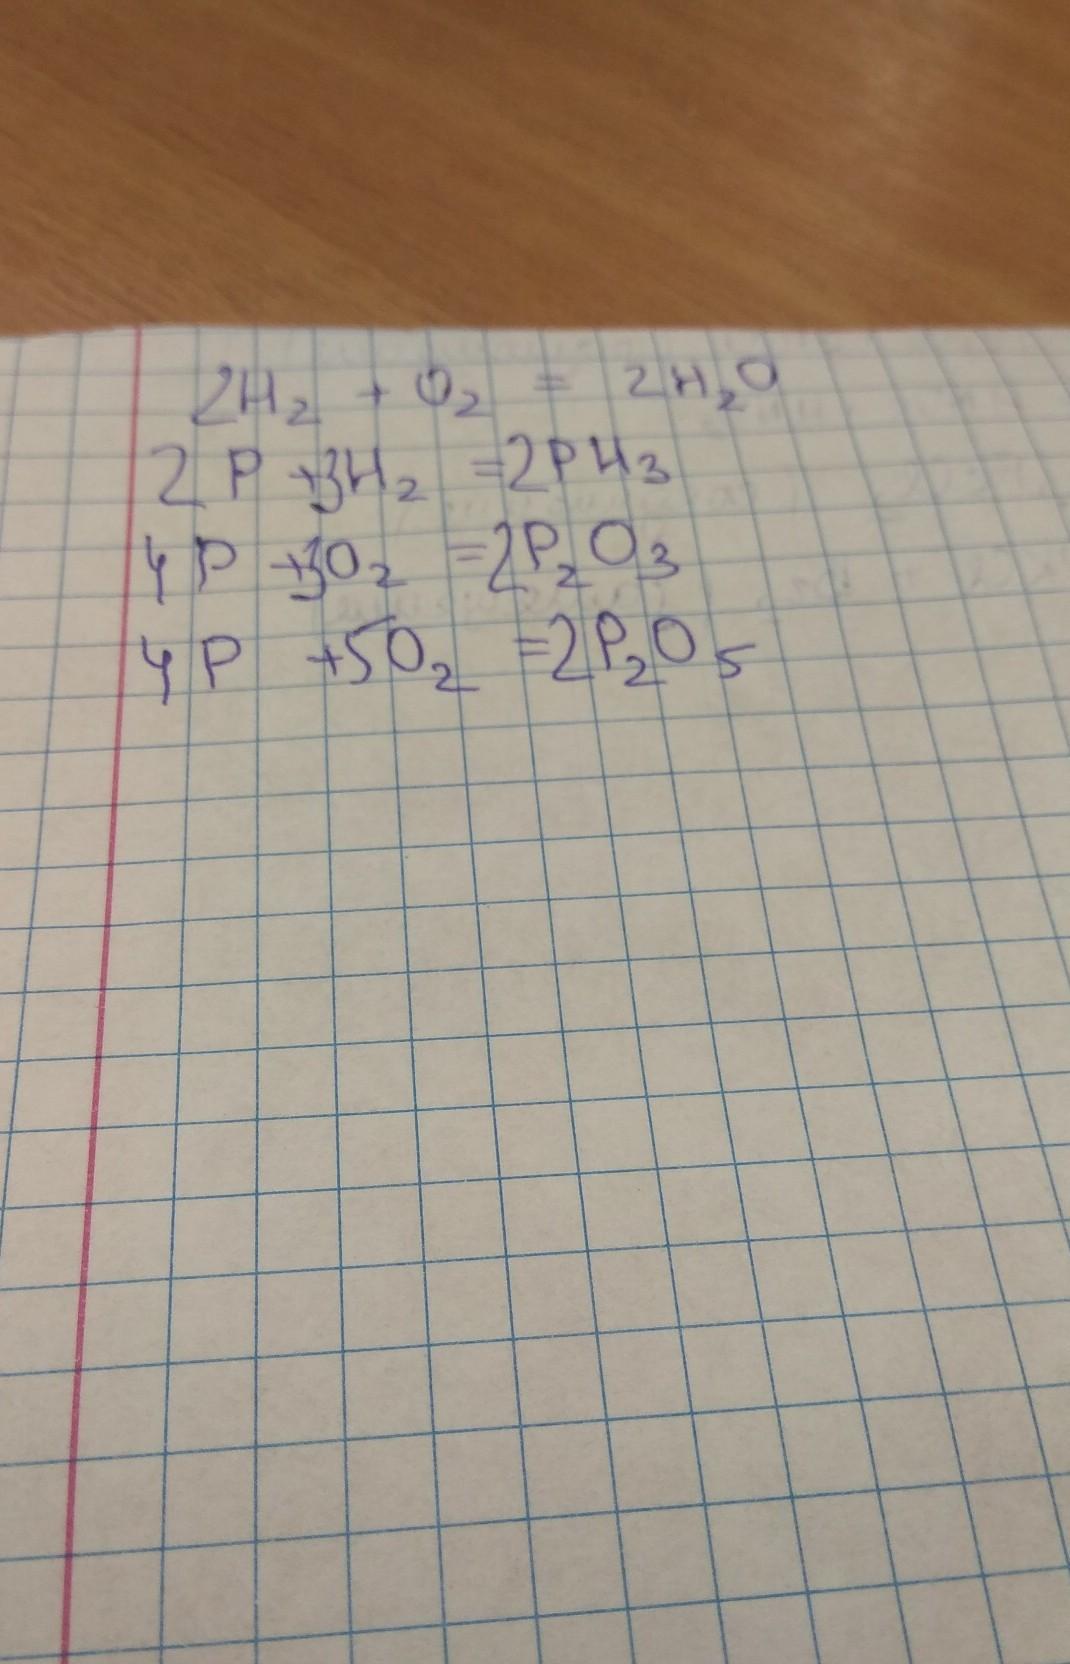 2H₂ + O₂ = 2H₂O
2P +3H₂ =2PH₃
4P +3O₂ =2P₂O₃
4P +5O₂ =2P₂O₅